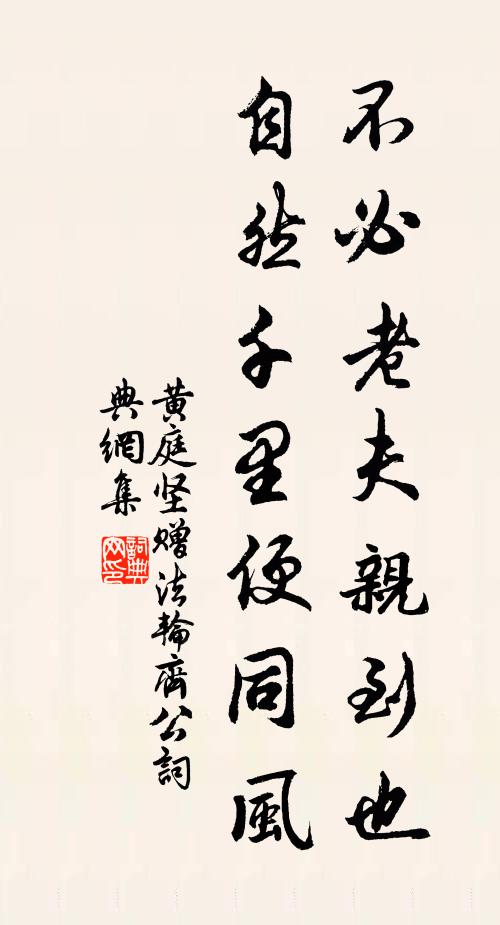 不必老夫親到也
自然千里便同風
黄庭坚赠法輪齊公詞
典網集
詞典
网印